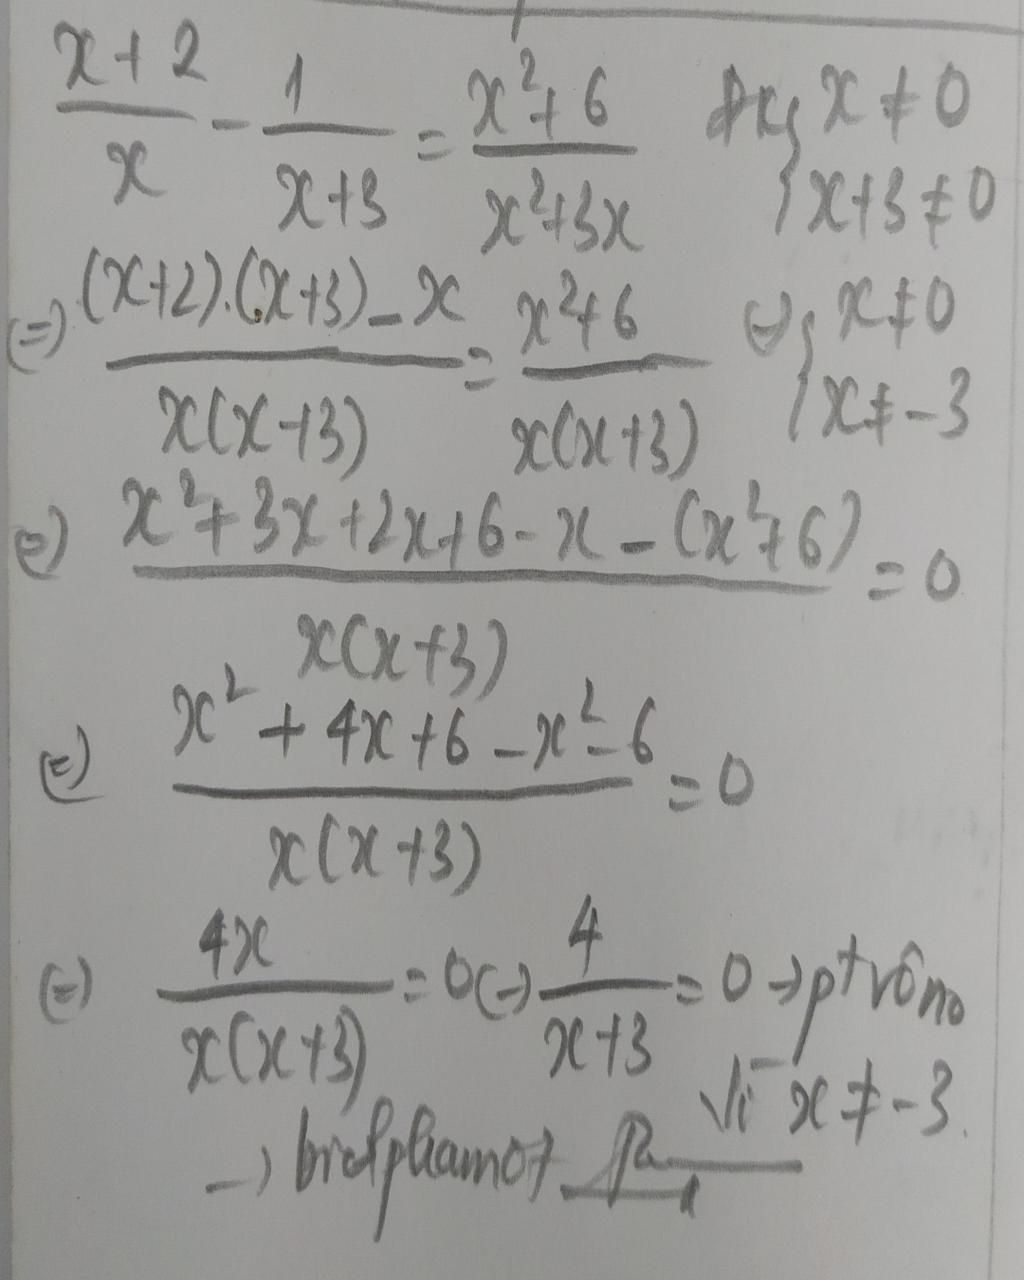 (x+2)/x - 1/(x+3) = (x²+6)/(x²+3x) ĐK { x ≠ 0
{ x+3 ≠ 0
(=) ((x+2).(x+3) - x)/(x(x+3)) = (x²+6)/(x(x+3)) (=) { x ≠ 0
{ x ≠ -3
(=) (x²+3x+2x+6-x-(x²+6))/(x(x+3)) = 0
(=) (x²+4x+6-x²-6)/(x(x+3)) = 0
(=) 4x/(x(x+3)) = 0 (=) 4/(x+3) = 0 → pt vô no
Vì x ≠ -3.
→